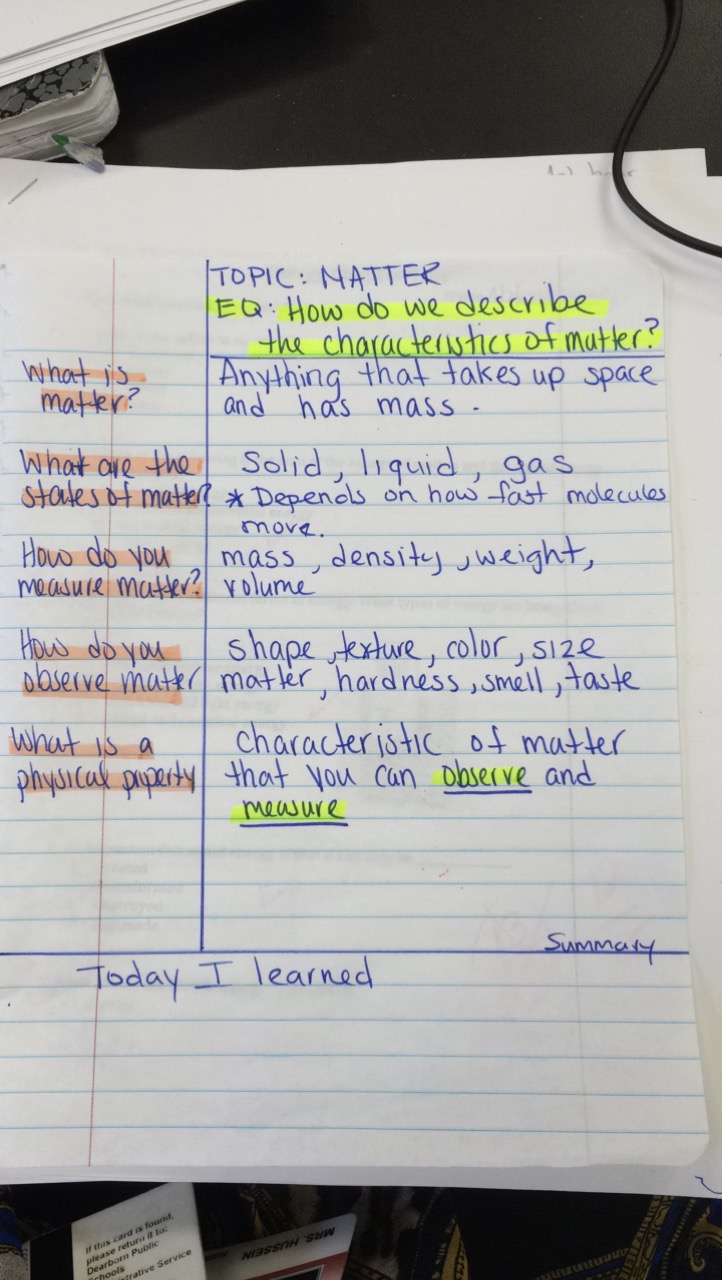 TOPIC: MATTER
EQ: How do we describe
the characteristics of matter?
What is
matter?
Anything that takes up space
and has mass.
What are the
states of matter?
Solid, liquid, gas
* Depends on how fast molecules
move.
How do you
measure matter?
mass, density, weight,
volume
How do you
observe matter
shape, texture, color, size
matter, hardness, smell, taste
What is a
physical property
characteristic of matter
that you can observe and
measure
Summary
Today I learned
If this card is found,
please return it to:
Dearborn Public
Schools
Service
MRS. HUSSEIN